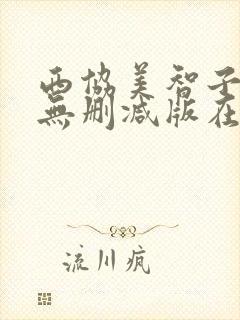 西協美智子
無删减版在
流川疯